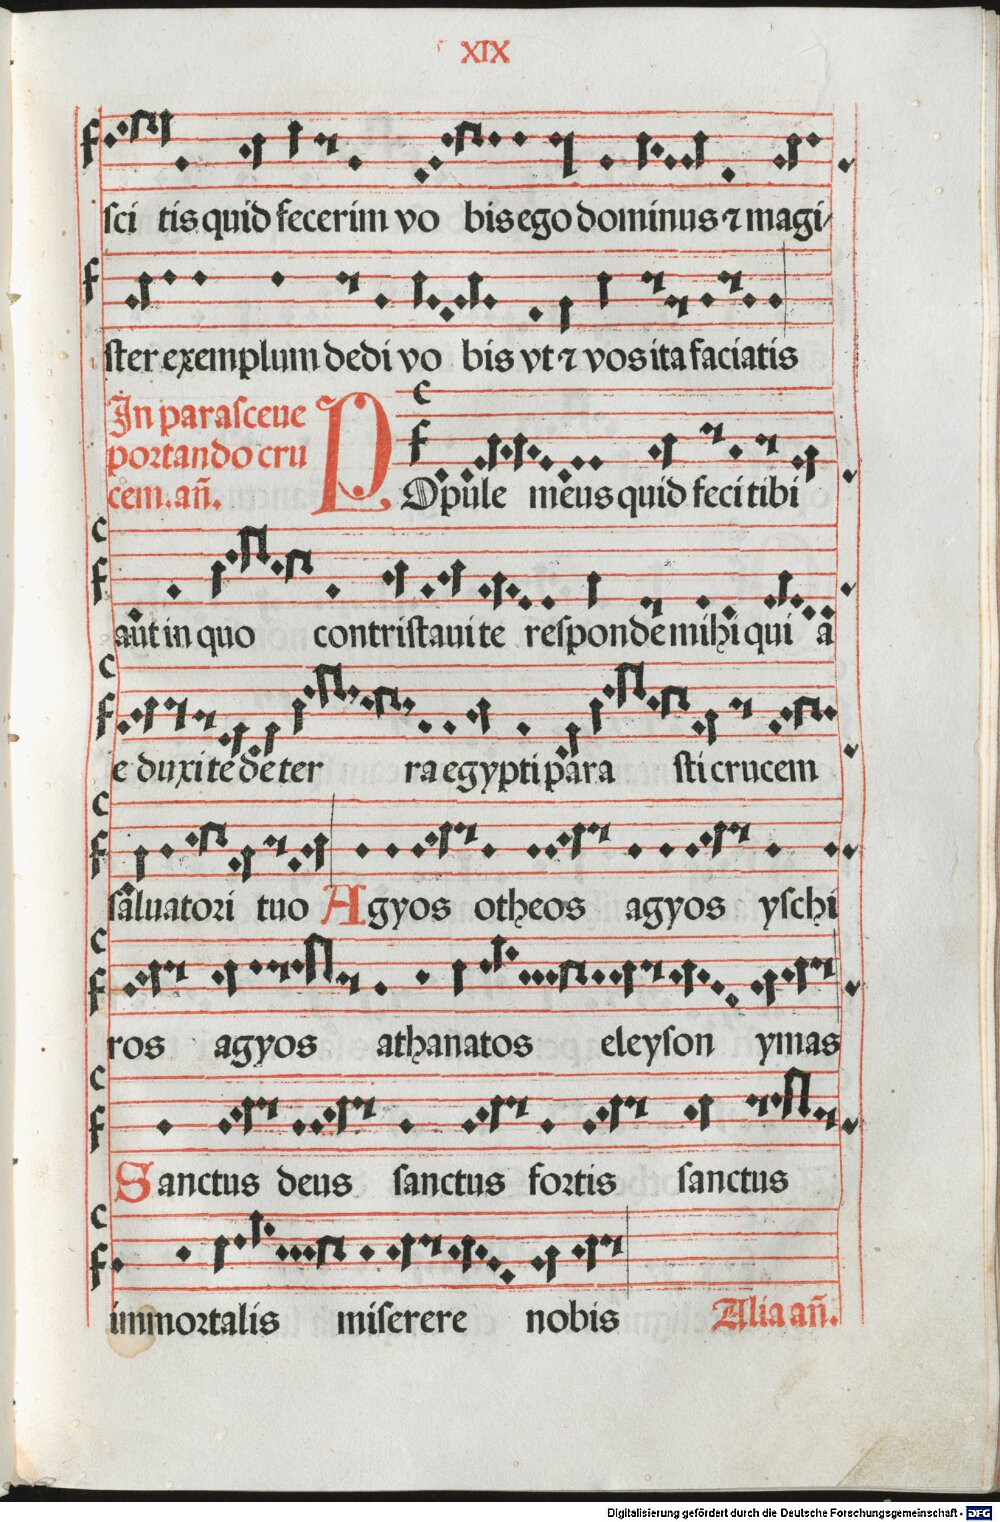 XIX
ſci tis quid fecerim vo bis ego dominus ⁊ magi/
ſter exemplum dedi vo bis vt ⁊ vos ita faciatis
In paraſceue
portando cru
cem. an̄.
POpule meus quid feci tibi
aut in quo contriſtaui te reſponde mihi qui a
eduxi te de ter ra egypti para ſti crucem
ſaluatori tuo Agyos otheos agyos yſchi
ros agyos athanatos eleyſon ymas
Sanctus deus ſanctus fortis ſanctus
immortalis miſerere nobis Alia an̄.
Digitalisierung gefördert durch die Deutsche Forschungsgemeinschaft - DFG